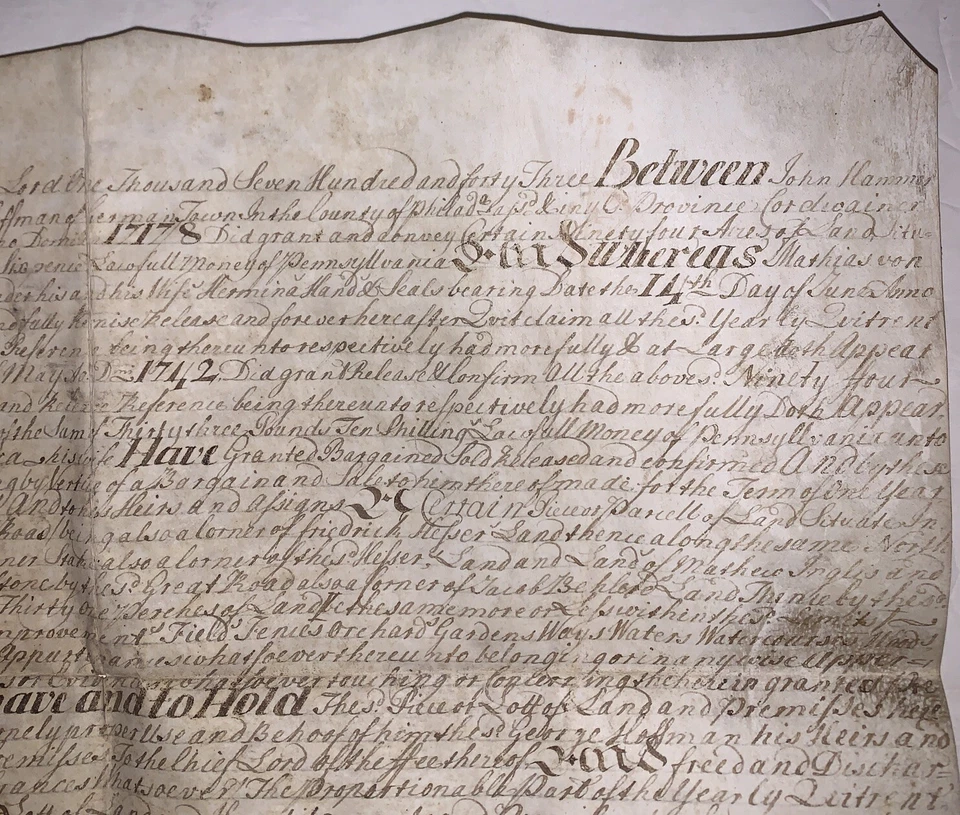 Lord One Thousand Seven Hundred and forty Three Between John Hammer
ffman of German Town In the County of Philada afsd. & in ye Province Cordwainer
1717/8 Did grant and convey Certain Ninety four Acres of Land Situ-
Six pence Lawfull Money of Pennsyllvania And Whereas Mathias von
under his and his Wife Hermina Hand & Seals bearing Date the 14th Day of June Anno
and fully Remise Release and forever hereafter Quit claim all the sd. Yearly Quitrent
Referenc being thereunto respectively had more fully & at Large doth Appear
May Ao. Dmi 1742 Did grant Release & Confirm All the above sd. Ninety ffour
and Reference being thereunto respectively had more fully Doth Appear
of the Sum of Thirty three Pounds Ten Shillings Lawfull Money of Pennsyllvania unto
his wife Have Granted Bargained Sold Released and confirmed And by these
by Vertue of a Bargain and Sale to him thereof made for the Term of One Year
And to his Heirs and Assigns A Certain Piece or Parcell of Land Situate In
Road being also a corner of friedrick Hesser Land thence along the same North
also a corner of the sd. Hesser's Land and Land of Mathew Inglis and
Stone by the sd. Great Road also a corner of Jacob Land Thence by the sd.
Thirty One Perches of Land be the same more or Less within the sd. Limits of
Improvements Fields Fences Orchards Gardens Ways Waters Watercourses Woods
Appurtenances whatsoever thereunto belonging or in any wise apper=
or Evidences whatsoever touching or Concerning the herein granted
have and to Hold The sd. Piece or Lott of Land and Premisses
only proper Use and Behoof of him the sd. George Hoffman his Heirs and
Premisses To the Chief Lord of the ffee thereof And freed and Dischar=
whatsoever The Proportionable Part of the Yearly Quitrent
Lott of Land